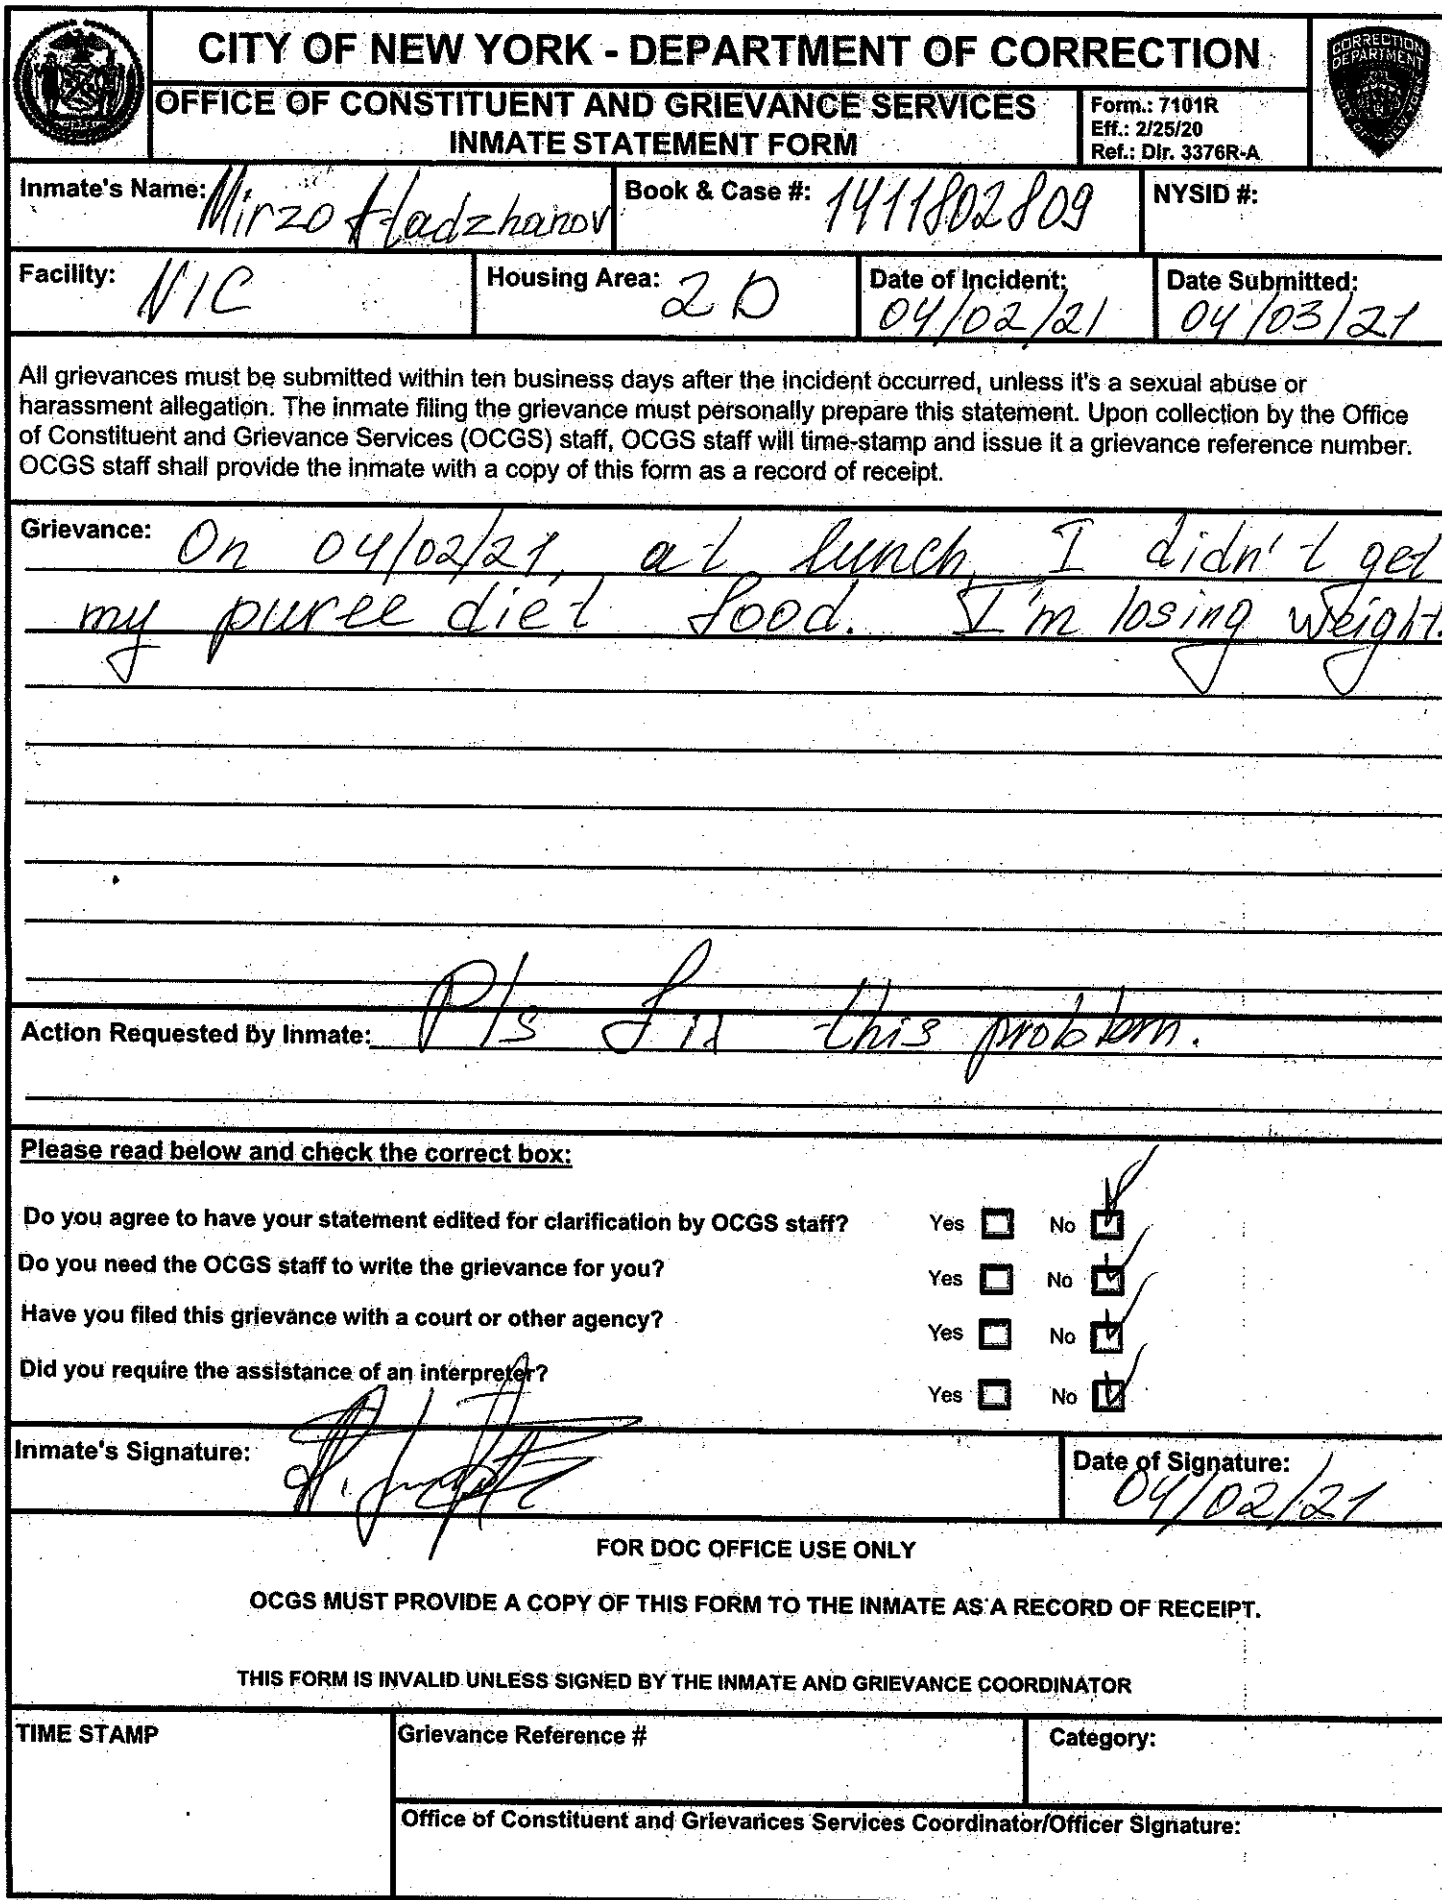 CITY OF NEW YORK - DEPARTMENT OF CORRECTION
OFFICE OF CONSTITUENT AND GRIEVANCE SERVICES
INMATE STATEMENT FORM
Form.: 7101R
Eff.: 2/25/20
Ref.: Dir. 3376R-A
CORRECTION
DEPARTMENT
Inmate's Name: Mirzo Hadzhanov
Book & Case #: 1411802809
NYSID #:
Facility: NIC
Housing Area: 2D
Date of Incident: 04/02/21
Date Submitted: 04/03/21
All grievances must be submitted within ten business days after the incident occurred, unless it's a sexual abuse or
harassment allegation. The inmate filing the grievance must personally prepare this statement. Upon collection by the Office
of Constituent and Grievance Services (OCGS) staff, OCGS staff will time-stamp and issue it a grievance reference number.
OCGS staff shall provide the inmate with a copy of this form as a record of receipt.
Grievance: On 04/02/21, at lunch, I didn't get
my puree diet food. I'm losing weight.
Action Requested by Inmate: Pls fix this problem.
Please read below and check the correct box:
Do you agree to have your statement edited for clarification by OCGS staff? Yes No
Do you need the OCGS staff to write the grievance for you? Yes No
Have you filed this grievance with a court or other agency? Yes No
Did you require the assistance of an interpreter? Yes No
Inmate's Signature:
Date of Signature: 04/02/21
FOR DOC OFFICE USE ONLY
OCGS MUST PROVIDE A COPY OF THIS FORM TO THE INMATE AS A RECORD OF RECEIPT.
THIS FORM IS INVALID UNLESS SIGNED BY THE INMATE AND GRIEVANCE COORDINATOR
TIME STAMP
Grievance Reference #
Category:
Office of Constituent and Grievances Services Coordinator/Officer Signature: